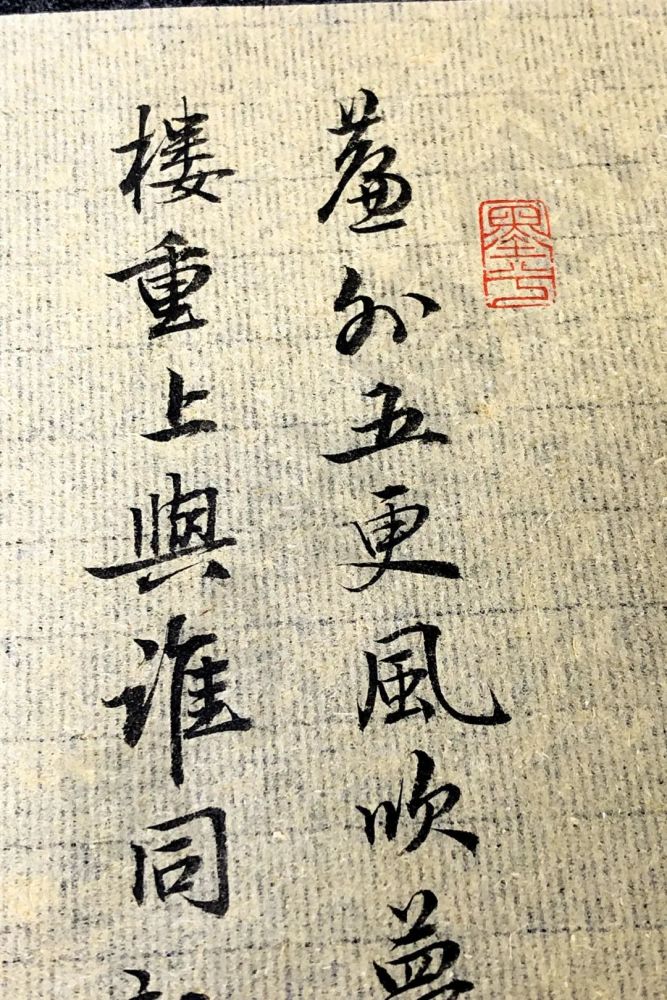 簾外五更風吹夢
樓重上與誰同